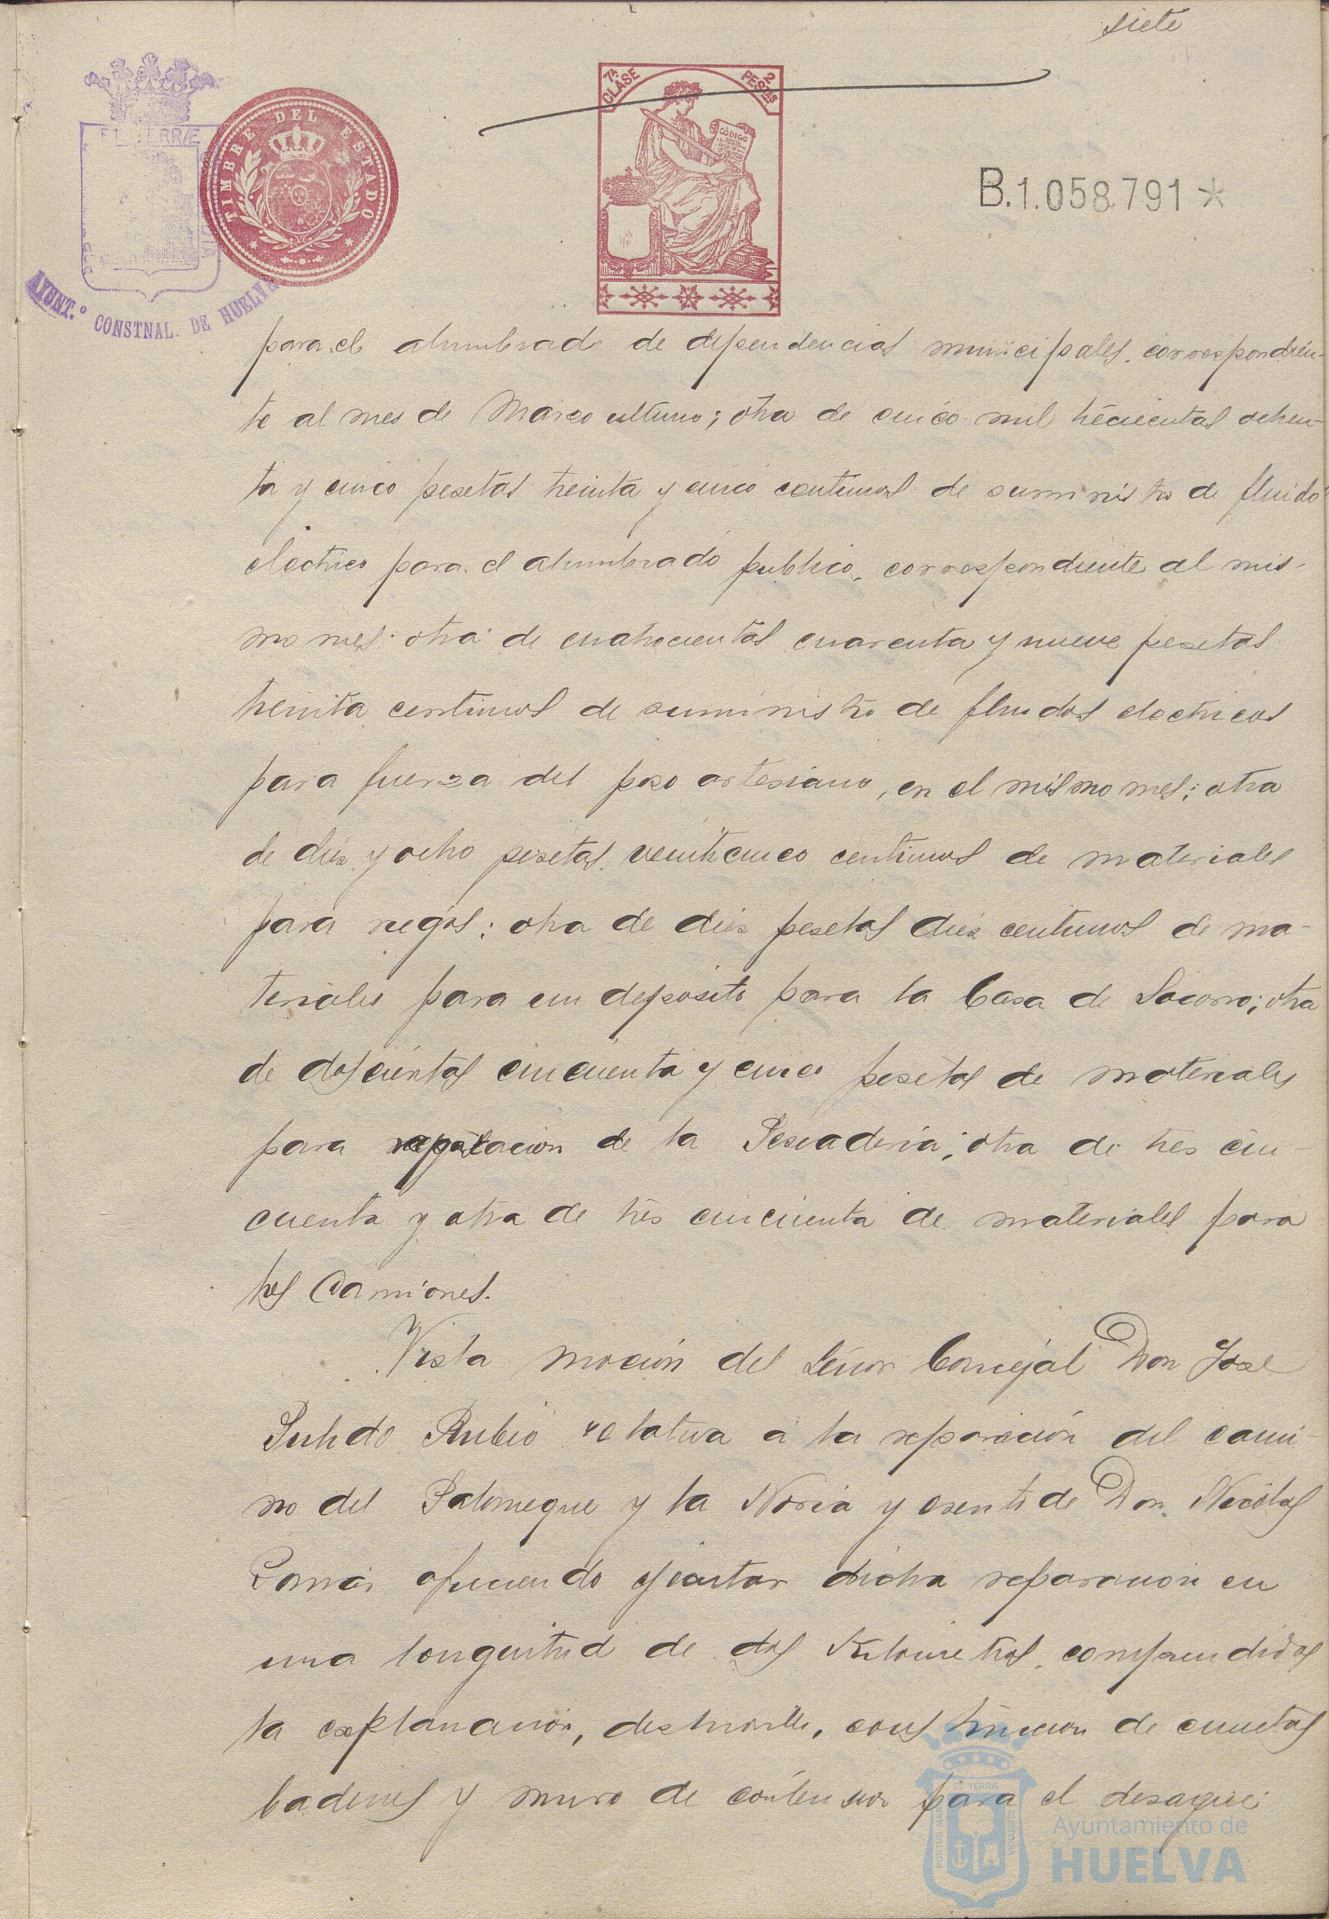 siete
EL TERRÆ
AYUNT.º CONSTNAL. DE HUELVA
TIMBRE DEL ESTADO
7ª CLASE
2 PESETAS
CODIGO
B.1.058.791*
para el alumbrado de dependencias municipales, correspondien-
te al mes de Marzo ultimo; otra de cinco mil trecientas ochen-
ta y cinco pesetas treinta y cinco centimos de suministro de fluido
electrico para el alumbrado publico, correspondiente al mis-
mo mes; otra de cuatrocientas cuarenta y nueve pesetas
treinta centimos de suministro de fluidos electricos
para fuerza del poso artesiano, en el mismo mes; otra
de dies y ocho pesetas veinticinco centimos de materiales
para riegos; otra de dies pesetas dies centimos de ma-
teriales para un deposito para la Casa de Socorro; otra
de doscientas cincuenta y cinco pesetas de materiales
para reparacion de la Pescaderia; otra de tres cin-
cuenta y otra de tres cincuenta de materiales para
los Camiones.
Vista mocion del Señor Concejal Don Jose
Pulido Rubio relativa á la reparación del cami-
no del Palomeque y la Noria y escrito de Don Nicolas
Gomez ofreciendo ejecutar dicha reparacion en
una longuitud de dos kilometros, comprendidos
la explanacion, desmonte, construccion de cunetas
badenes y muro de contension para el desague
Ayuntamiento de
HUELVA